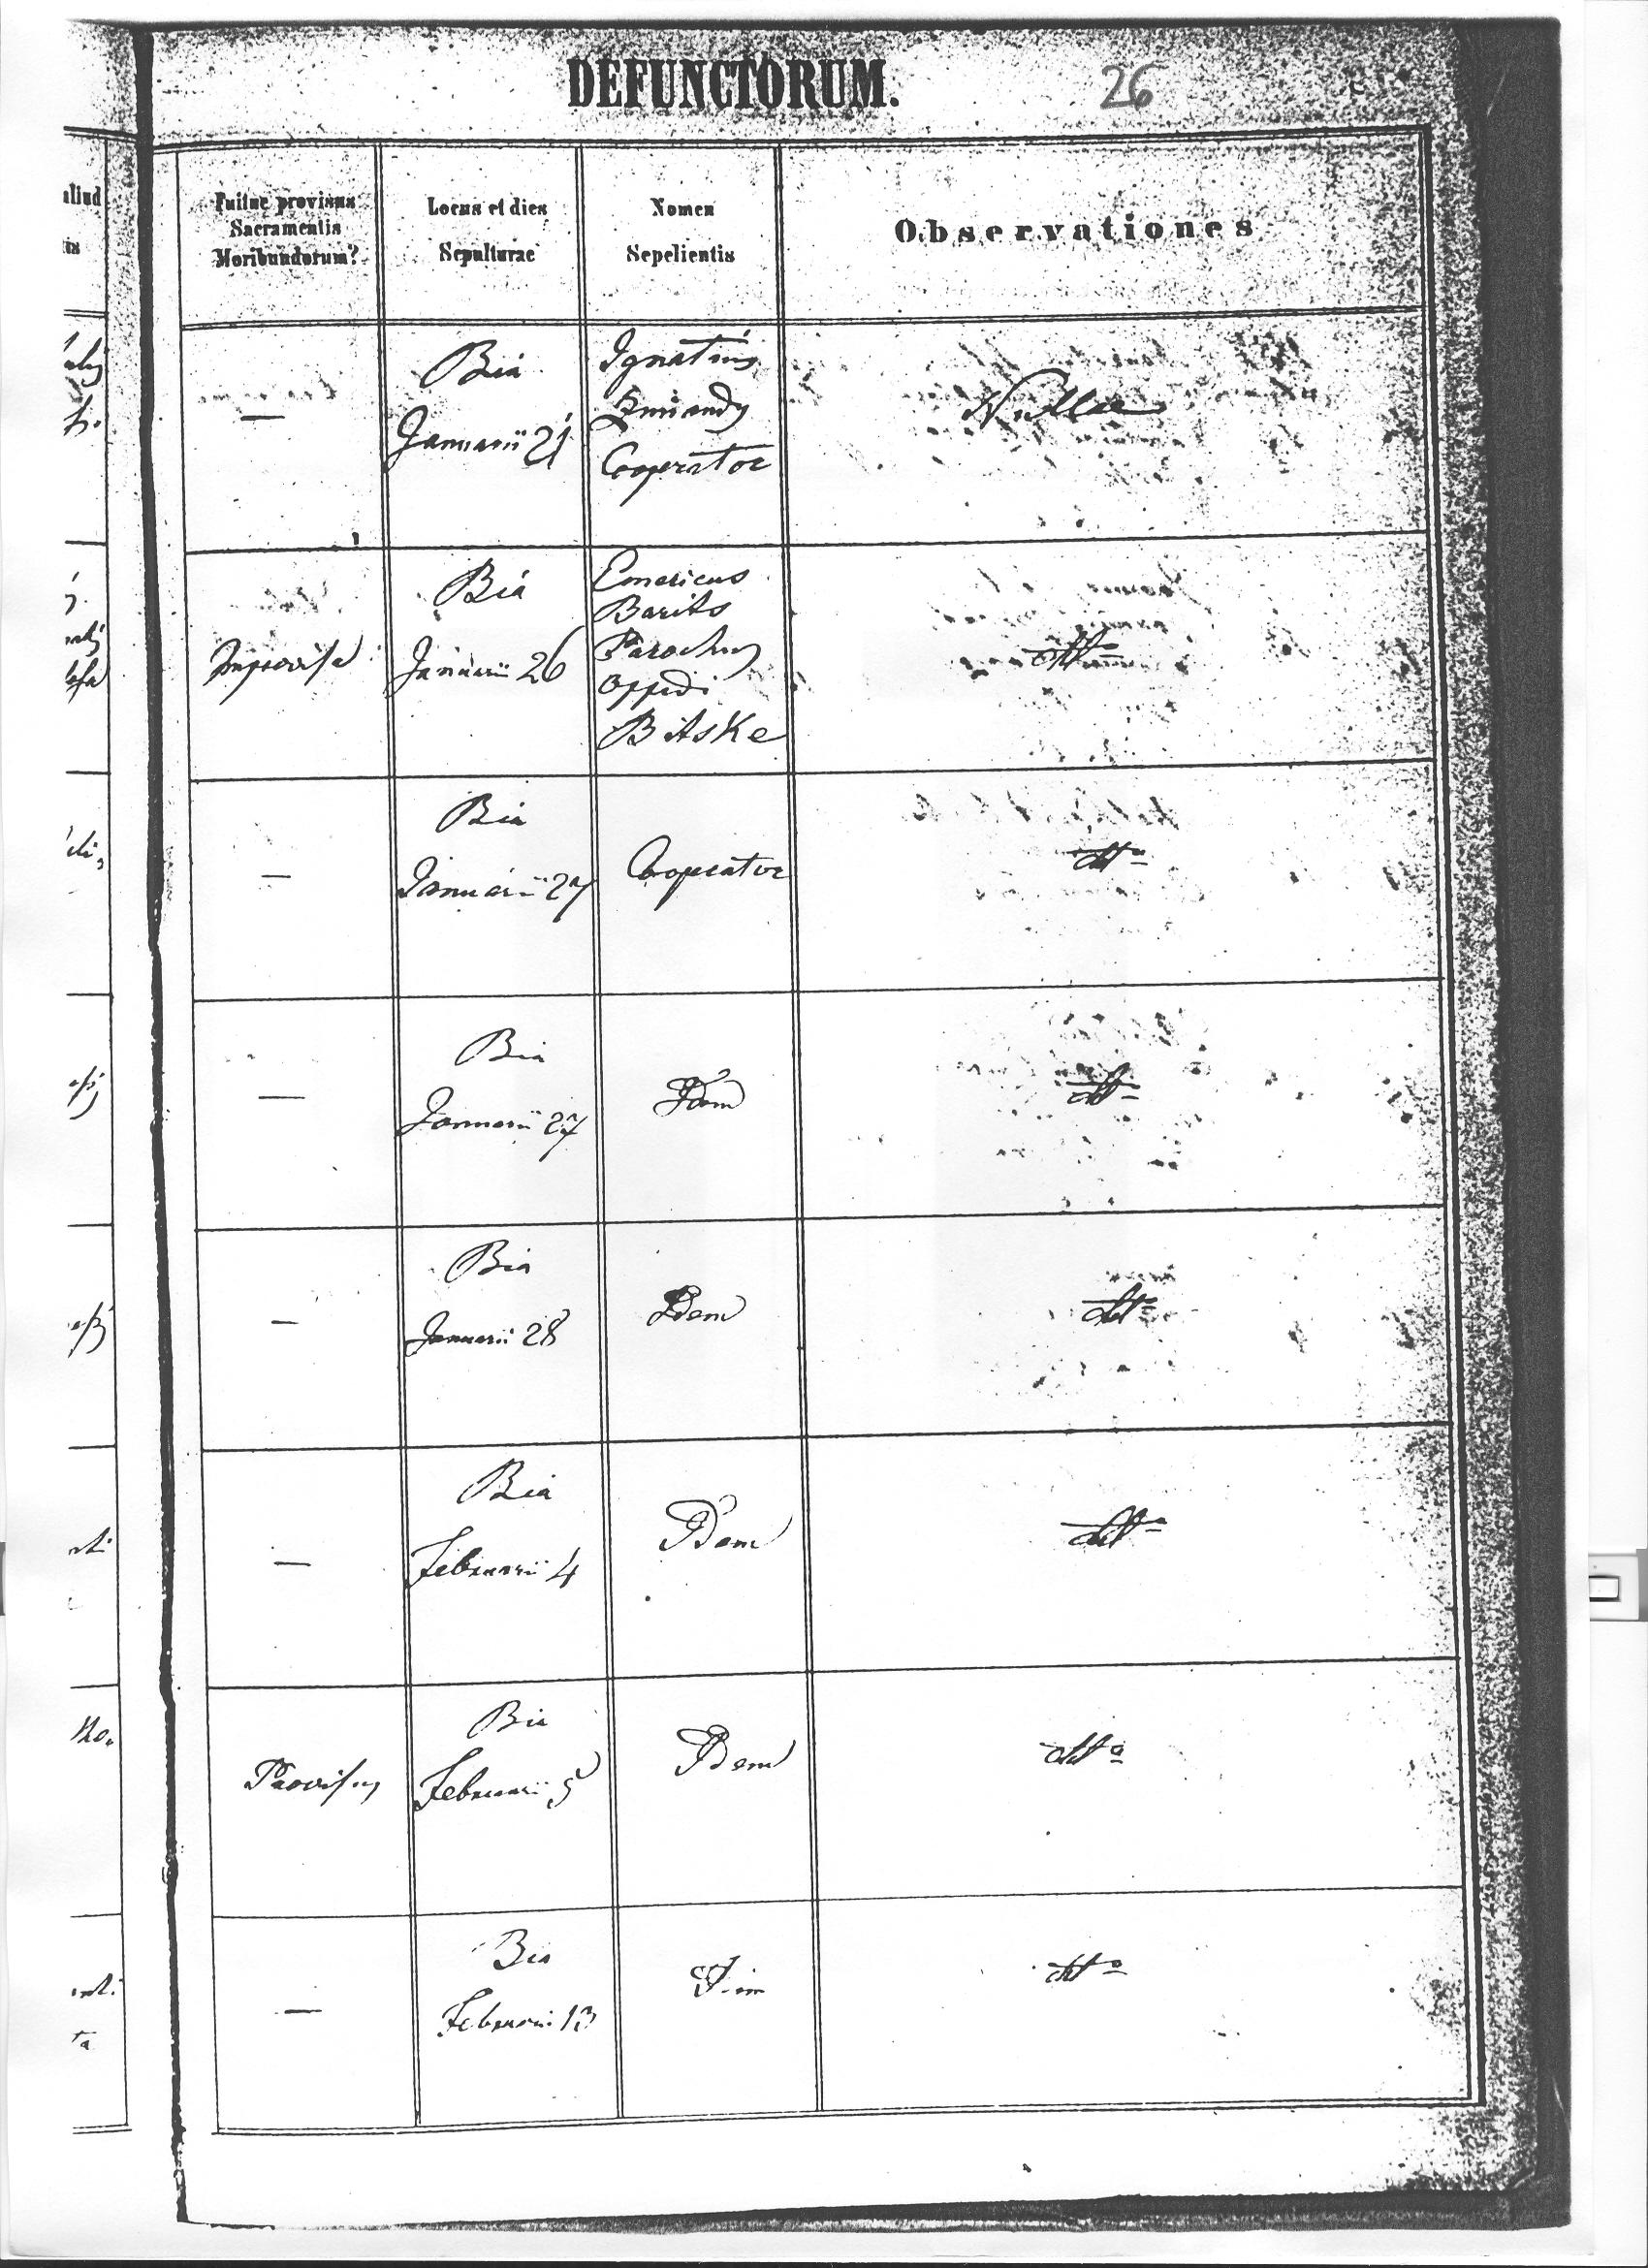 DEFUNCTORUM.
26
Fuitne provisus
Sacramentis
Moribundorum?
Locus et dies
Sepulturae
Nomen
Sepelientis
Observationes
—
Bia
Januarii 21
Ignatius
Cooperator
Nullae
Improvisa
Bia
Januarii 26
Emericus
Barits
Parochus
oppidi
Bitske
dtto
—
Bia
Januarii 27
Cooperator
dtto
—
Bia
Januarii 27
Idem
dtto
—
Bia
Januarii 28
Idem
dtto
—
Bia
Februarii 4
Idem
dtto
Provisus
Bia
Februarii 5
Idem
dtto
—
Bia
Februarii 13
Idem
dtto